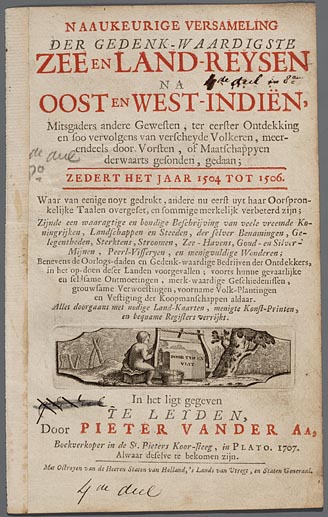 NAAUKEURIGE VERSAMELING
DER GEDENK-WAARDIGSTE
ZEE EN LAND-REYSEN
4de deel in 8vo
NA
OOST EN WEST-INDIËN,
Mitsgaders andere Gewesten, ter eerster Ontdekking
en soo vervolgens van verscheyde Volkeren, meer-
endeels door Vorsten, of Maatschappyen
derwaarts gesonden, gedaan;
de deel
ZEDERT HET JAAR 1504 TOT 1506.
Waar van eenige noyt gedrukt, andere nu eerst uyt haar Oorspron-
kelijke Taalen overgeset, en sommige merkelijk verbeterd zijn;
Zijnde een waaragtige en bondige Beschrijving van veele vreemde Ko-
ningrijken, Landschappen en Steeden, der selver Benamingen, Ge-
legentheden, Sterktens, Stroomen, Zee-Havens, Goud- en Silver-
Mijnen, Peerl-Visseryen, en menigvuldige Wonderen;
Benevens de Oorlogs-daden en Gedenk-waardige Bedrijven der Ontdekkers,
in het op-doen deser Landen voorgevallen; voorts hunne gevaarlijke
en seltsame Ontmoetingen, merk-waardige Geschiedenissen,
grouwsame Verwoestingen, voorname Volk-Plantingen
en Vestiging der Koopmanschappen aldaar.
Alles doorgaans met nodige Land-Kaarten, menigte Konst-Printen,
en bequame Registers verrijkt.
DOOR TYD EN
VLYT
In het ligt gegeven
TE LEYDEN,
Door PIETER VANDER AA,
Boekverkoper in de St. Pieters Koor-steeg, in PLATO. 1707.
Alwaar deselve te bekomen zijn.
Met Octroyen van de Heeren Staten van Holland, 's Lands van Utregt, en Staten Generaal.
4de deel